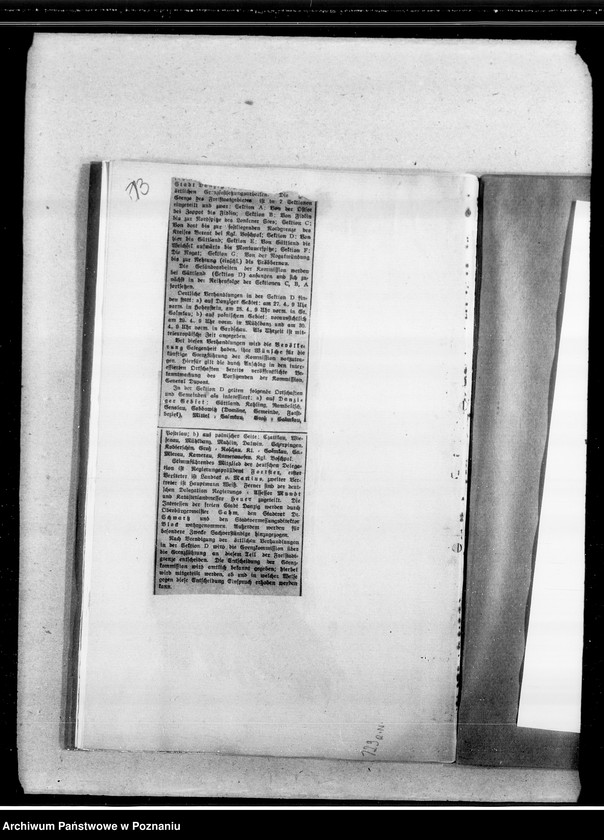 713
Stadt
örtlichen Grenzfestsetzungsarbeiten. Die
Grenze des Freistaatgebietes ist in 7 Sektionen
eingeteilt und zwar: Sektion A: Von der Ostsee
bei Zoppot bis Fidlin; Sektion B: Von Fidlin
bis zur Nordspitze des Sees; Sektion C:
Von dort bis zur festliegenden Nordgrenze des
Kreises Berent bei Kgl. Boschpol; Sektion D: Von
hier bis Güttland; Sektion E: Von Güttland die
Weichsel aufwärts bis Montauerspitze; Sektion F:
Die Nogat; Sektion G: Von der Nogatmündung
bis zur Nehrung (einschl.) bis Pröbbernau.
Die Geländearbeiten der Kommission werden
bei Güttland (Sektion D) anfangen und sich zu-
nächst in der Reihenfolge der Sektionen C, B, A
fortsetzen.
Oertliche Verhandlungen in der Sektion D fin-
den statt: a) auf Danziger Gebiet: am 27. 4. 9 Uhr
vorm. in Hohenstein, am 28. 4. 9 Uhr vorm. in Gr.
Saalau; b) auf polnischem Gebiet: voraussichtlich
am 29. 4. 9 Uhr vorm. in Mühlbanz und am 30.
4. 9 Uhr vorm. in Gardschau. Als Uhrzeit ist mit-
teleuropäische Zeit angegeben.
Bei diesen Verhandlungen wird die Bevölke-
rung Gelegenheit haben, ihre Wünsche für die
künftige Grenzführung der Kommission vorzutra-
gen. Hierfür gilt die durch Anschlag in den inter-
essierten Ortschaften bereits veröffentlichte Be-
kanntmachung des Vorsitzenden der Kommission,
General Dupont.
In der Sektion D gelten folgende Ortschaften
und Gemeinden als interessiert: a) auf Danzi-
ger Gebiet: Güttland, Kohling, Rambeltsch,
Senslau, Sobbowitz (Domäne, Gemeinde, Forst-
bezirk), Mittel - Golmkau, Groß - Golmkau,
Postelau; b) auf polnischer Seite: Czattkau, Wie-
senau, Mühlbanz, Mahlin, Dalwin,
Kobbierschin, Groß - Roschau, Kl. - Golmkau, Go-
Kamerau, Kgl. Boschpol.
Stimmführendes Mitglied der deutschen Delega-
tion ist Regierungspräsident Foerster, erster
Vertreter ist Landrat v. Martius, zweiter Ver-
treter ist Hauptmann Weiß. Ferner sind der deut-
schen Delegation Regierungs - Assessor Mundt
und Katasterlandmesser Heuer zugeteilt. Die
Interessen der freien Stadt Danzig werden durch
Oberbürgermeister Sahm, den Stadtrat Dr.
Schwartz und den Stadtvermessungsdirektor
Block wahrgenommen. Außerdem werden für
besondere Zwecke Sachverständige hinzugezogen.
Nach Beendigung der örtlichen Verhandlungen
in der Sektion D wird die Grenzkommission über
die Grenzführung an diesem Teil der Freistaat-
grenze entscheiden. Die Entscheidung der Grenz-
kommission wird amtlich bekannt gegeben; hierbei
wird mitgeteilt werden, ob und in welcher Weise
gegen diese Entscheidung Einspruch erhoben werden
kann.
Archiwum Państwowe w Poznaniu